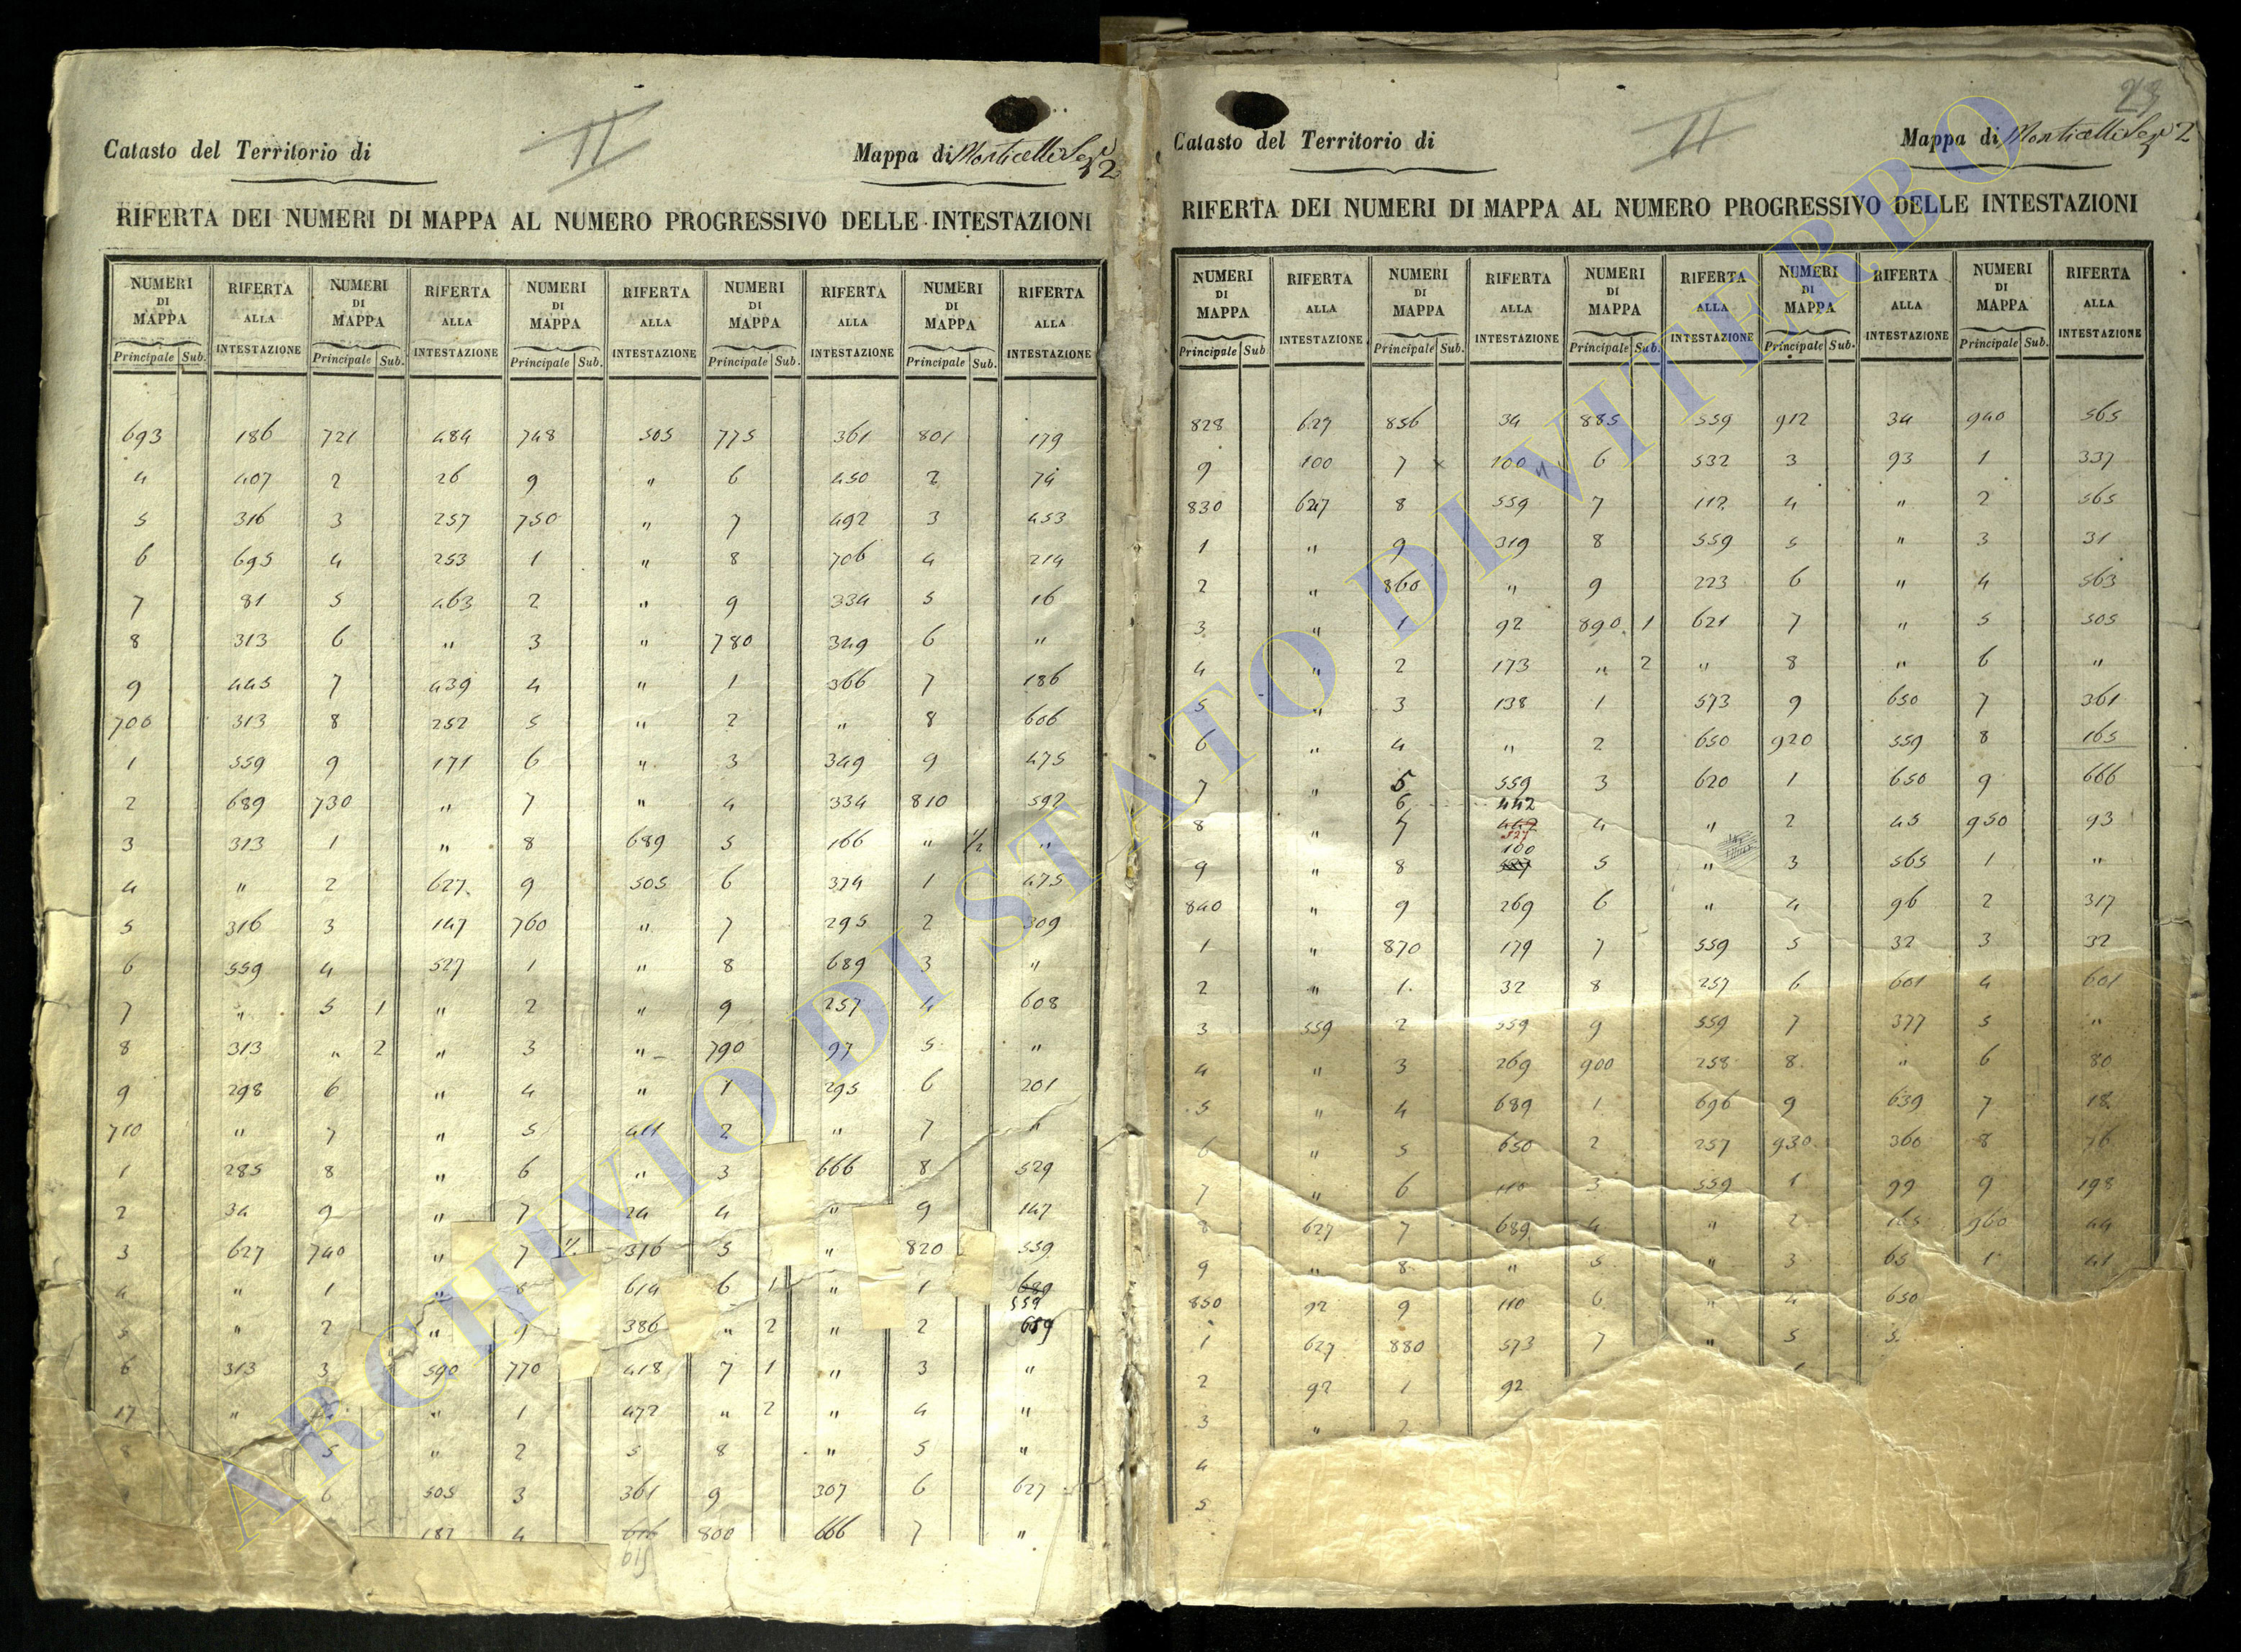 II
Catasto del Territorio di Mappa di Monticelli Sez 2
RIFERTA DEI NUMERI DI MAPPA AL NUMERO PROGRESSIVO DELLE INTESTAZIONI
NUMERI DI MAPPA RIFERTA ALLA INTESTAZIONE NUMERI DI MAPPA RIFERTA ALLA INTESTAZIONE NUMERI DI MAPPA RIFERTA ALLA INTESTAZIONE NUMERI DI MAPPA RIFERTA ALLA INTESTAZIONE NUMERI DI MAPPA RIFERTA ALLA INTESTAZIONE
Principale Sub. Principale Sub. Principale Sub. Principale Sub. Principale Sub.
693 186 721 484 748 505 775 361 801 179
4 407 2 26 9 " 6 450 2 74
5 316 3 257 750 " 7 492 3 453
6 695 4 253 1 " 8 706 4 214
7 81 5 463 2 " 9 334 5 16
8 313 6 " 3 " 780 349 6 "
9 445 7 439 4 " 1 366 7 186
700 313 8 252 5 " 2 " 8 606
1 559 9 171 6 " 3 349 9 475
2 689 730 " 7 " 4 334 810 592
3 313 1 " 8 689 5 166 " 1/2 "
4 " 2 627 9 505 6 374 1 475
5 316 3 147 760 " 7 295 2 309
6 559 4 527 1 " 8 689 3 "
7 " 5 1 " 2 " 9 257 4 608
8 313 " 2 " 3 " 790 97 5 "
9 298 6 " 4 " 1 295 6 201
710 " 7 " 5 411 2 " 7 "
1 285 8 " 6 " 3 666 8 529
2 34 9 " 7 24 4 " 9 147
3 627 740 " 7 1/. 316 5 " 820 559
4 " 1 " 8 614 6 1 " 1 689
559
5 " 2 " 9 386 " 2 " 2 689
6 313 3 590 770 418 7 1 " 3 "
17 " 4 " 1 472 " 2 " 4 "
8 5 " 2 5 8 " 5 "
6 505 3 361 9 307 6 627
187 4 616 800 666 7 "
619
II
23
Catasto del Territorio di Mappa di Monticelli Sez 2
RIFERTA DEI NUMERI DI MAPPA AL NUMERO PROGRESSIVO DELLE INTESTAZIONI
NUMERI DI MAPPA RIFERTA ALLA INTESTAZIONE NUMERI DI MAPPA RIFERTA ALLA INTESTAZIONE NUMERI DI MAPPA RIFERTA ALLA INTESTAZIONE NUMERI DI MAPPA RIFERTA ALLA INTESTAZIONE NUMERI DI MAPPA RIFERTA ALLA INTESTAZIONE
Principale Sub Principale Sub. Principale Sub. Principale Sub. Principale Sub.
828 627 856 34 885 559 912 34 940 565
9 100 7 x 100 6 532 3 93 1 337
830 627 8 559 7 112 4 " 2 565
1 " 9 319 8 559 5 " 3 31
2 " 860 " 9 223 6 " 4 563
3 " 1 92 890 1 621 7 " 5 505
4 " 2 173 " 2 " 8 " 6 "
5 " 3 138 1 573 9 650 7 361
6 " 4 " 2 650 920 559 8 165
7 " 5 559 3 620 1 650 9 666
6 442
8 " 7 442 4 " 2 45 950 93
527
100
9 " 8 527 5 " 3 565 1 "
840 " 9 269 6 " 4 96 2 317
1 " 870 179 7 559 5 32 3 32
2 " 1 32 8 257 6 601 4 601
3 559 2 559 9 559 7 377 5 "
4 " 3 269 900 258 8 " 6 80
5 " 4 689 1 696 9 639 7 18
6 " 5 650 2 257 930 360 8 76
7 " 6 110 3 559 1 99 9 198
8 627 7 689 4 " 2 165 960 44
9 " 8 " 5 " 3 65 1 41
850 92 9 110 6 " 4 650
1 627 880 573 7 " 5 5
2 92 1 92
3 " 2
4
5
ARCHIVIO DI STATO DI VITERBO